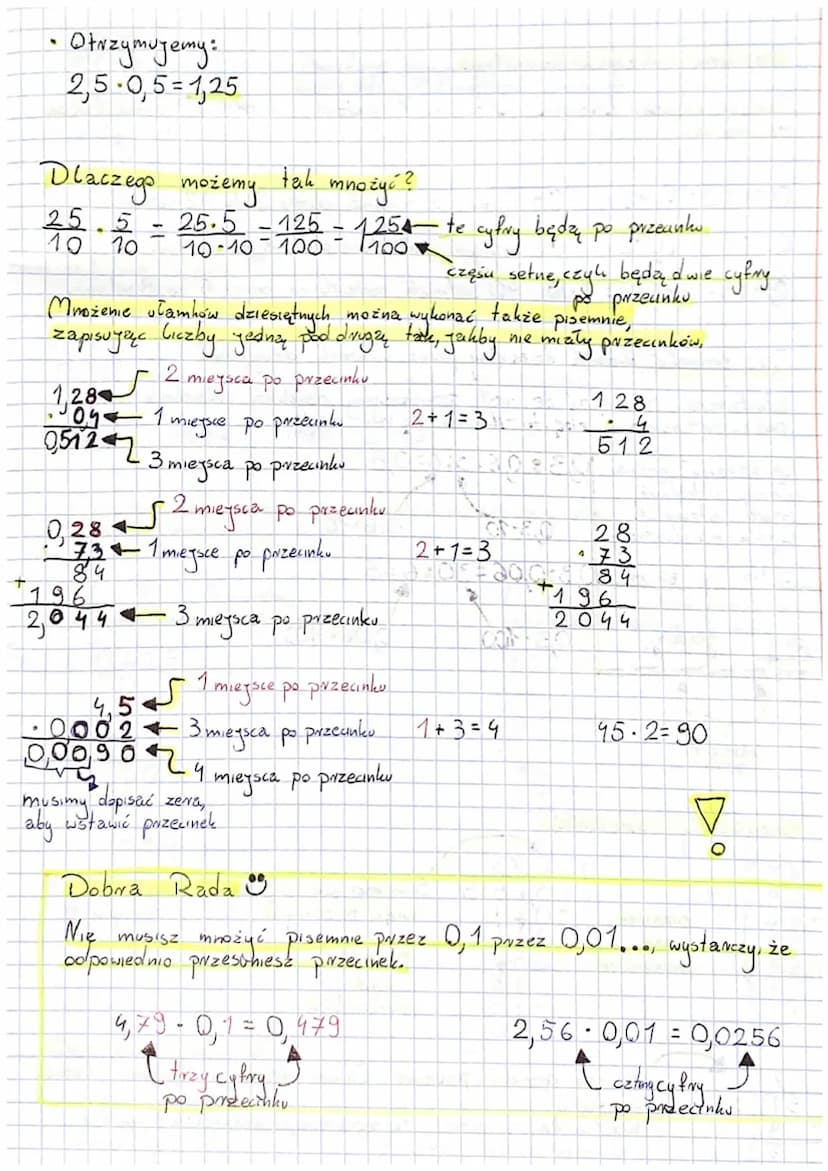 • Otrzymujemy:
2,5 · 0,5 = 1,25
Dlaczego możemy tak mnożyć?
25/10 · 5/10 = 25·5/10·10 = 125/100 = 125/100 te cyfry będą po przecinku
części setne, czyli będą dwie cyfry
po przecinku
Mnożenie ułamków dziesiętnych można wykonać także pisemnie,
zapisując liczby jedną pod drugą tak, jakby nie miały przecinków,
2 miejsca po przecinku
1,28
128
· 0,4 1 miejsce po przecinku 2+1=3 · 4
0,512
512
3 miejsca po przecinku
2 miejsca po przecinku
0,28
28
· 7,3 1 miejsce po przecinku 2+1=3 · 73
84
84
+ 196
+ 196
2,044 3 miejsca po przecinku 2044
1 miejsce po przecinku
4,5
· 0,002 3 miejsca po przecinku 1+3=4 45·2=90
0,0090
4 miejsca po przecinku
musimy dopisać zera,
aby wstawić przecinek
!
Dobra Rada
Nie musisz mnożyć pisemnie przez 0,1 przez 0,01..., wystarczy, że
odpowiednio przesuniesz przecinek.
4,79 · 0,1 = 0,479
2,56 · 0,01 = 0,0256
trzy cyfry
po przecinku
cztery cyfry
po przecinku